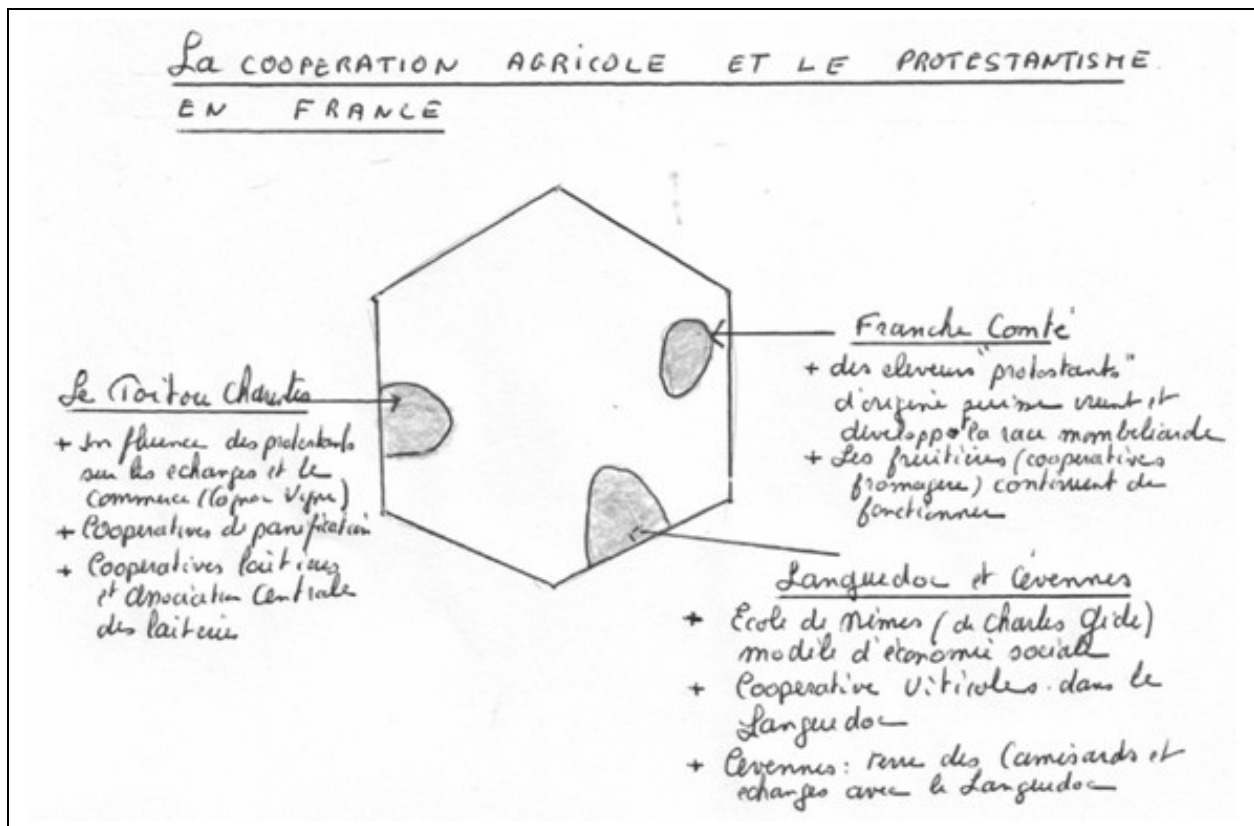 La COOPERATION AGRICOLE ET LE PROTESTANTISME
EN FRANCE
Le Poitou Charentes
+ Influence des protestants
sur les echanges et le
commerce (Cognac Vigne)
+ Cooperatives de panification
+ Cooperatives laitières
et association Centrale
des laiteries
Franche Comté
+ des eleveurs "protestants"
d'origine suisse créent et
developpe la race mombeliarde
+ Les fruitières (cooperatives
fromagere) continuent de
fonctionner
Languedoc et Cévennes
+ Ecole de Nîmes (de Charles Gide)
modèle d'économie sociale
+ Cooperative Viticoles dans le
Languedoc
+ Cevennes : terre des Camisards et
echanges avec le Languedoc